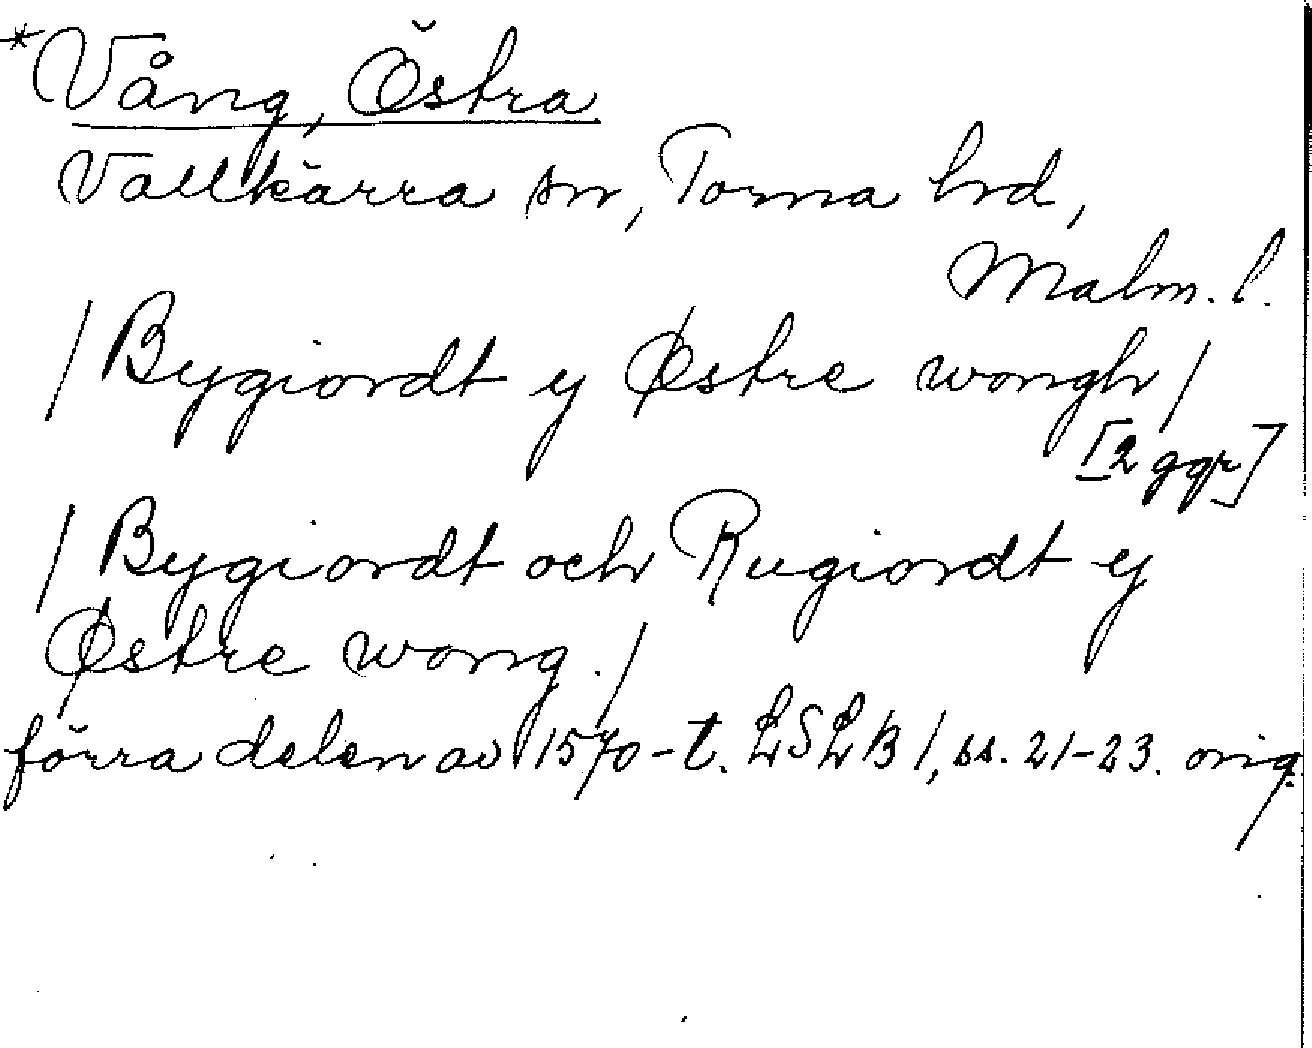 *Vång, Östra
Vallkärra sn, Torna hd,
Malm. l.
/ Bygiordt y Østre wongh /
[2 ggr]
/ Bygiordt och Rugiordt y
Østre wong. /
förra delen av 1570-t. LSLB 1, ss. 21-23. orig.